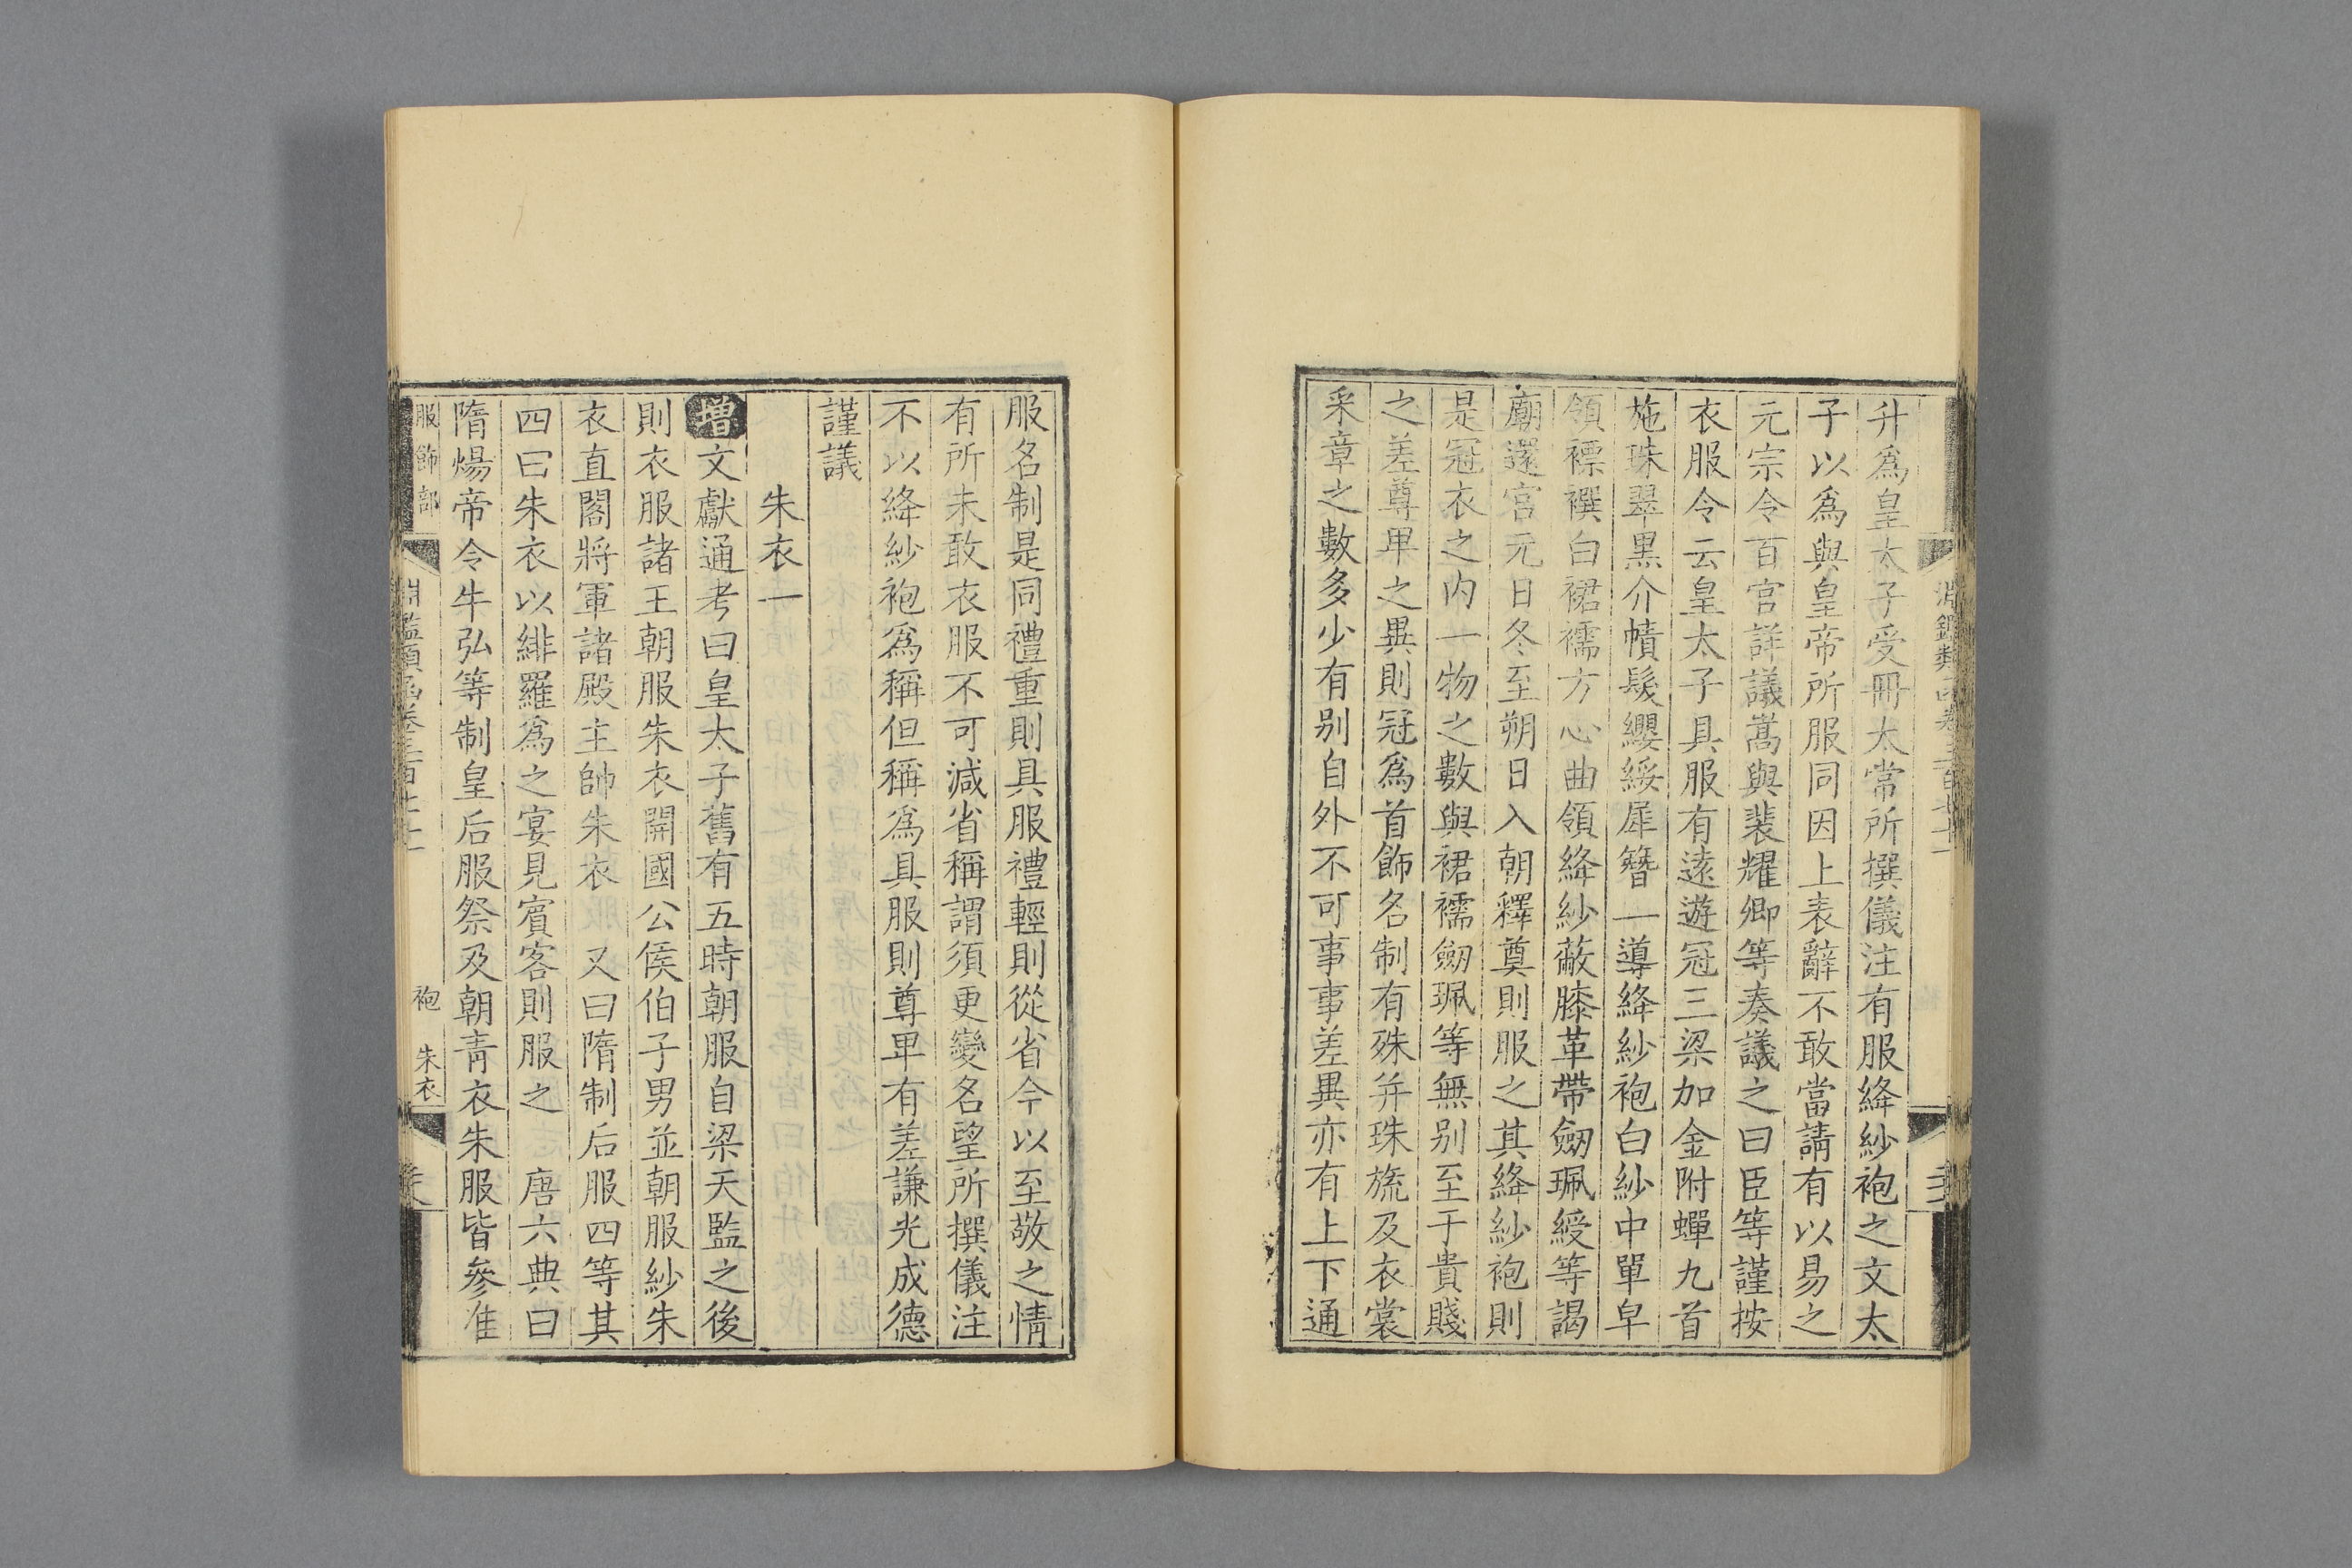 升爲皇太子受冊太常所撰儀注有服絳紗袍之文太
子以爲與皇帝所服同因上表辭不敢當請有以易之
元宗令百官詳議嵩與裴耀卿等奏議之曰臣等謹按
衣服令云皇太子具服有遠遊冠三梁加金附蟬九首
施珠翠黑介幘髮纓綏犀簪一導絳紗袍白紗中單皁
領褾襈白裙襦方心曲領絳紗蔽膝革帶劒珮綬等謁
廟還宮元日冬至朔日入朝釋奠則服之其絳紗袍則
是冠衣之内一物之數與裙襦劒珮等無别至于貴賤
之差尊卑之異則冠爲首飾名制有殊并珠旒及衣裳
采章之數多少有别自外不可事事差異亦有上下通
服名制是同禮重則具服禮輕則從省今以至敬之情
有所未敢衣服不可減省稱謂須更變名望所撰儀注
不以絳紗袍爲稱但稱爲具服則尊卑有差謙光成德
謹議
朱衣一
增文獻通考曰皇太子舊有五時朝服自梁天監之後
則衣服諸王朝服朱衣開國公侯伯子男並朝服紗朱
衣直閣將軍諸殿主帥朱衣服 又曰隋制后服四等其
四曰朱衣以緋羅爲之宴見賓客則服之 唐六典曰
隋煬帝令牛弘等制皇后服祭及朝青衣朱服皆參准
服飾部
袍 朱衣